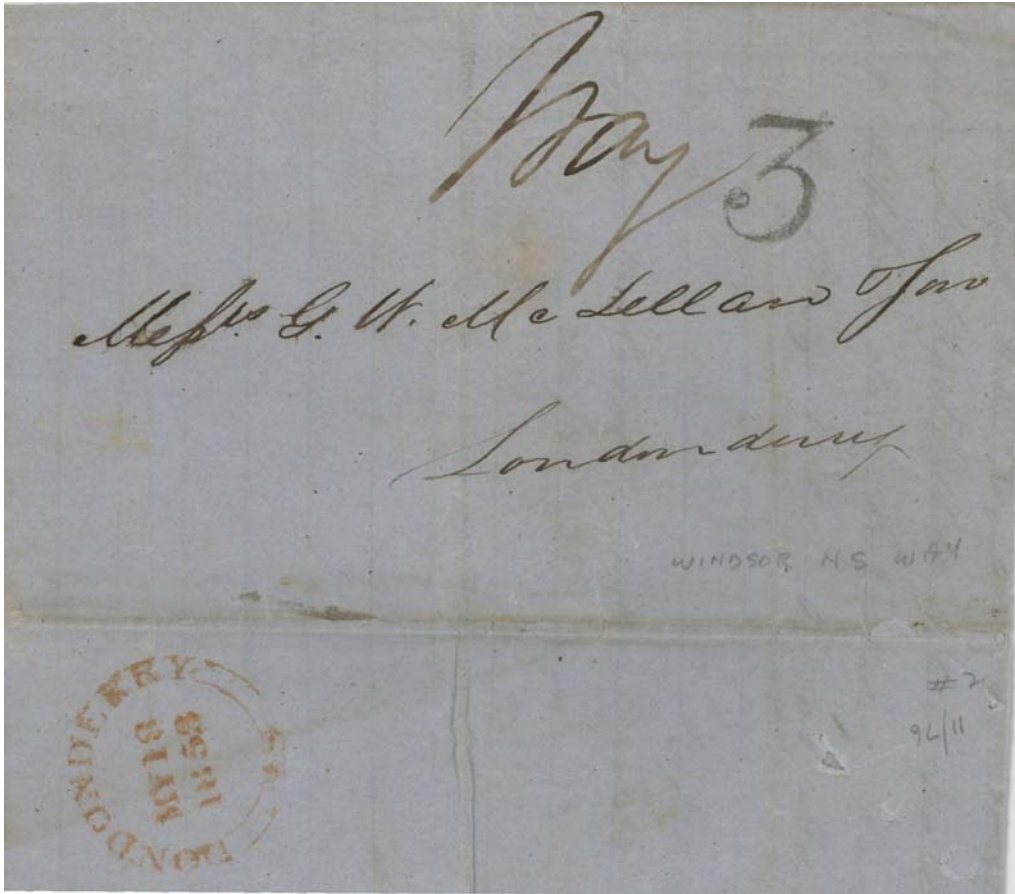 Way 3
Messrs G. W. McLellan & Son
Londonderry
WINDSOR NS WAY
#2
LONDONDERRY
MY 18